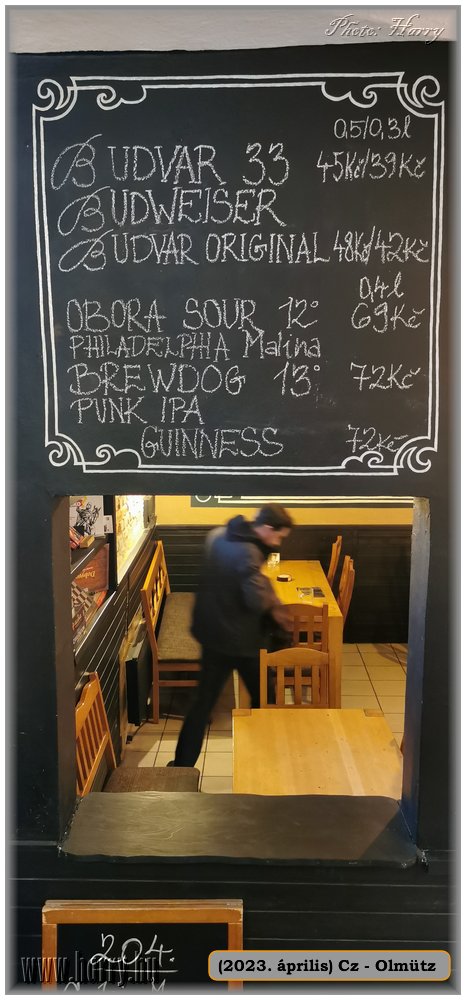 Photo: Harry
0,5l/0,3l
BUDVAR 33 45Kč/39Kč
BUDWEISER
BUDVAR ORIGINAL 48Kč/42Kč
0,4l
OBORA SOUR 12° 69Kč
PHILADELPHIA Malina
BREWDOG 13° 72Kč
PUNK IPA
GUINNESS 72Kč
20.4.
www.horry.hu
(2023. április) Cz - Olmütz